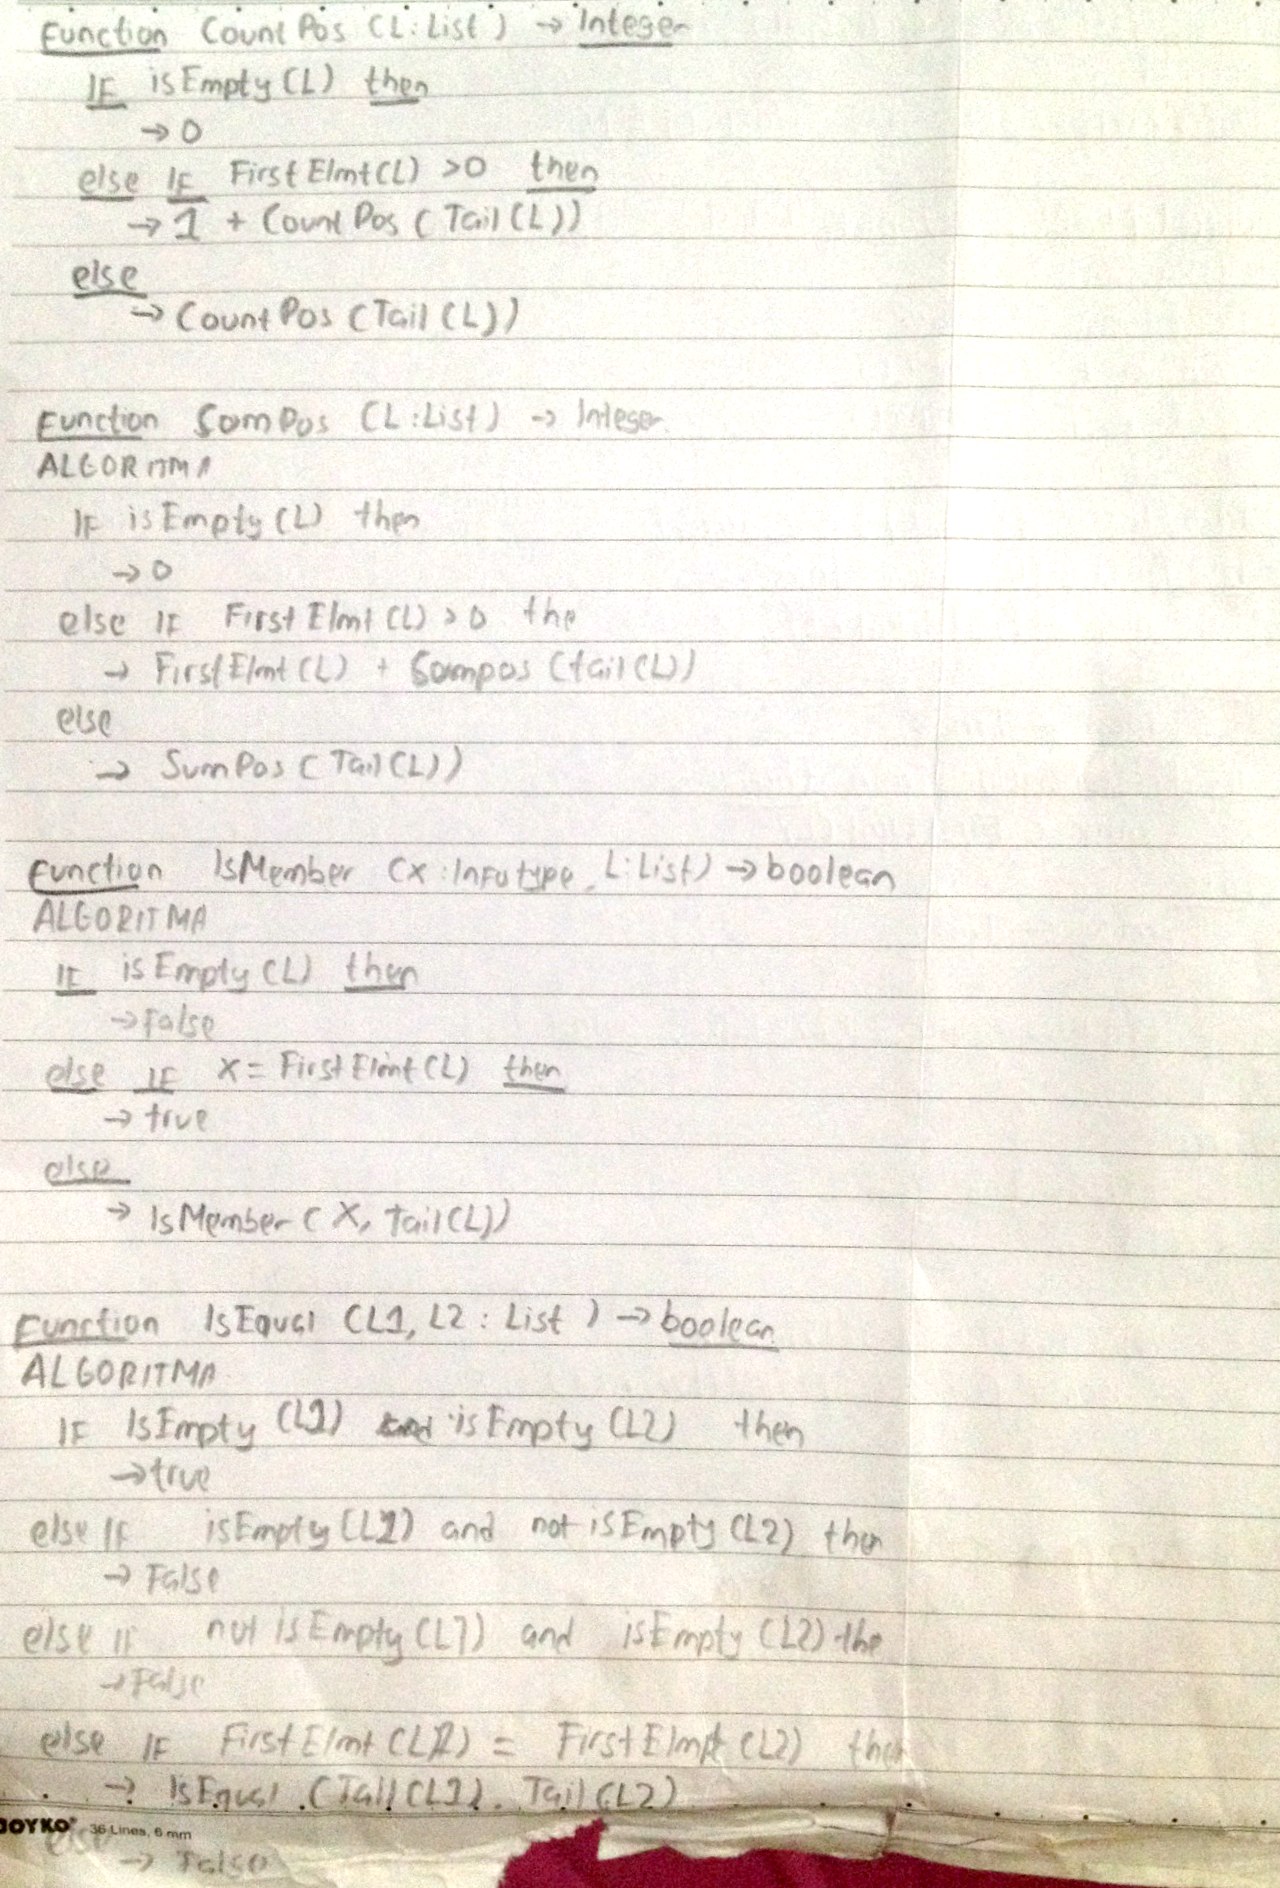 Function CountPos (L:List) → Integer
IF isEmpty(L) then
→ 0
else IF FirstElmt(L) >0 then
→ 1 + CountPos (Tail(L))
else
→ CountPos (Tail(L))
Function SomPos (L:List) → Integer
ALGORITMA
IF isEmpty(L) then
→ 0
else IF FirstElmt(L) >0 the
→ FirstElmt(L) + Sompos (tail(L))
else
→ SumPos (Tail(L))
Function IsMember (X:Infotype, L:List) → boolean
ALGORITMA
IF isEmpty(L) then
→ False
else IF X = FirstElmt(L) then
→ true
else
→ IsMember (X, Tail(L))
Function IsEqual (L1, L2 : List) → boolean
ALGORITMA
IF IsEmpty (L1) and isEmpty (L2) then
→ true
else IF isEmpty (L1) and not isEmpty (L2) then
→ False
else IF not isEmpty (L1) and isEmpty (L2) the
→ False
else IF FirstElmt (L1) = FirstElmt (L2) then
→ IsEqual (Tail(L1), Tail(L2)
JOYKO 36 Lines, 6 mm
else
→ False